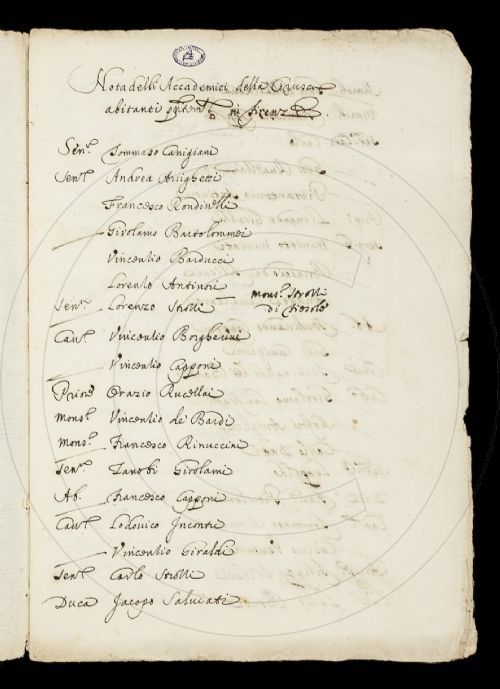 Nota delli Accademici della Crusca
abitanti in firenze.
Sen.r Tommaso Canigiani
Sen.r Andrea Arrighetti
Francesco Rondinelli
Girolamo Bartolommei
Vincentio Barducci
Lorenzo Antinori
Sen.r Lorenzo Strozzi Mons.r Strozzi
di fiesole
Cav.r Vincentio Borgherini
Vincentio Capponi
Priore Orazio Rucellai
Mons.r Vincentio de Bardi
Mons.r Francesco Rinuccini
Sen.r Zanobi Girolami
Ab. Francesco Capponi
Cav.r Lodovico Incontri
Vincentio Giraldi
Sen.r Carlo Strozzi
Duca Jacopo Salviati